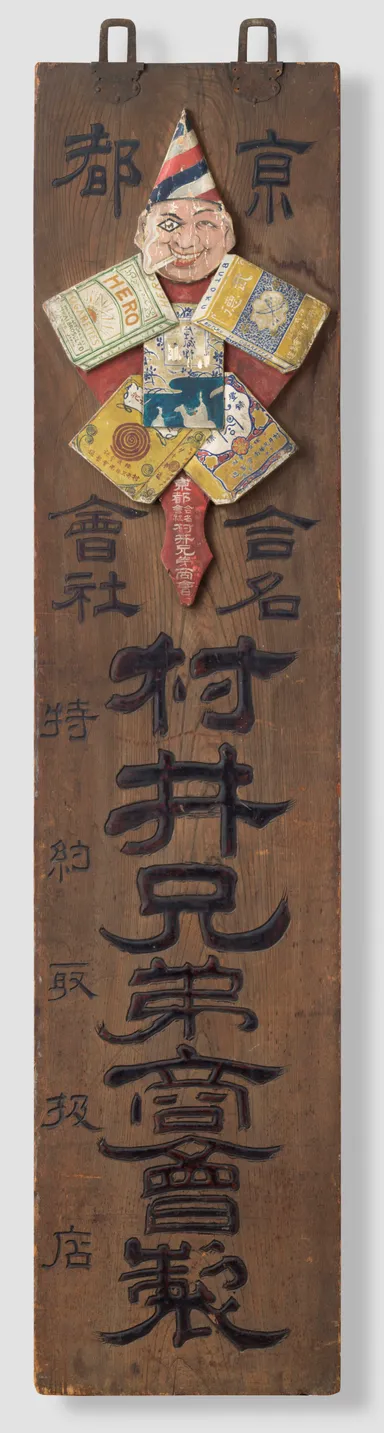 京都
合名
會社
村井兄弟商會製
特約取扱店
HERO
CIGARETTES
BUTOKU
武德
京都
合名
會社
村井兄弟商會